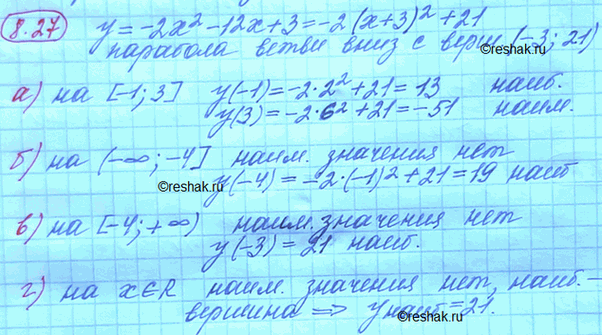 8.27 y = -2x² - 12x + 3 = -2(x+3)² + 21
парабола ветви вниз с верш (-3; 21)
©reshak.ru
а) на [-1; 3] y(-1) = -2·2² + 21 = 13 наиб.
y(3) = -2·6² + 21 = -51 наим.
б) на (-∞; -4] наим. значения нет
©reshak.ru
y(-4) = -2·(-1)² + 21 = 19 наиб
в) на [-4; +∞) наим. значения нет
y(-3) = 21 наиб.
©reshak.ru
г) на x∈R наим. значения нет, наиб. -
вершина ⇒ yнаиб = 21.
©reshak.ru